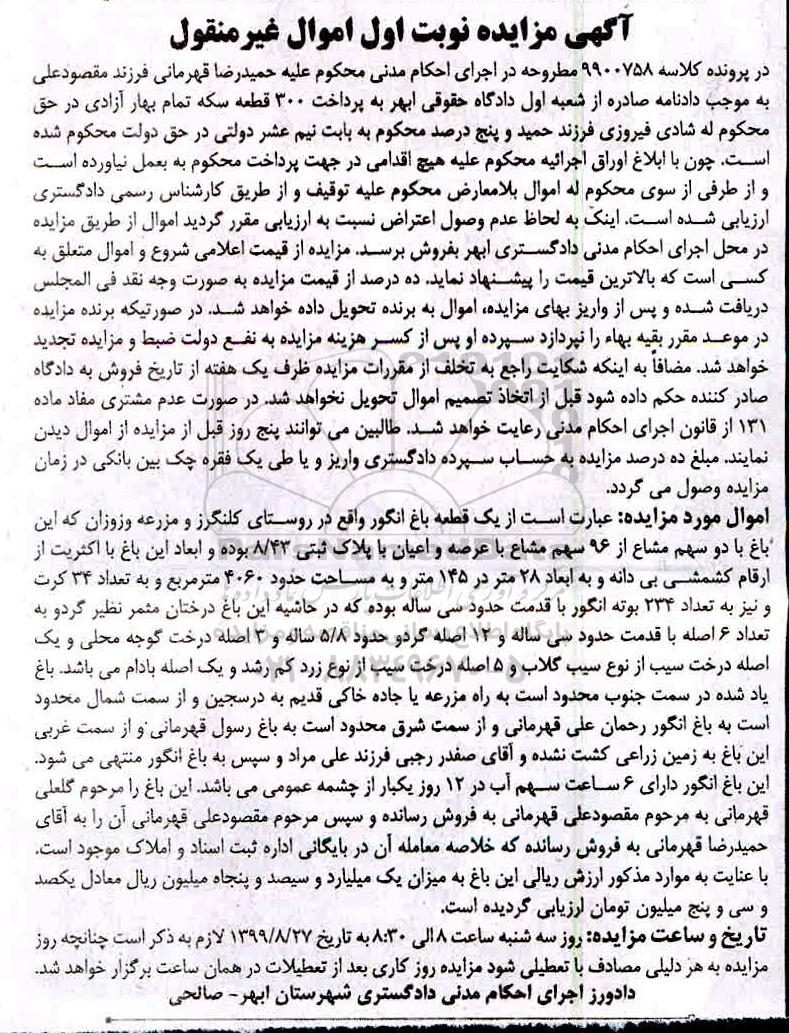 آگهی مزایده نوبت اول اموال غیرمنقول
در پرونده کلاسه ۹۹۰۰۷۵۸ مطروحه در اجرای احکام مدنی محکوم علیه حمیدرضا قهرمانی فرزند مقصودعلی
به موجب دادنامه صادره از شعبه اول دادگاه حقوقی ابهر به پرداخت ۳۰۰ قطعه سکه تمام بهار آزادی در حق
محکوم له شادی فیروزی فرزند حمید و پنج درصد محکوم به بابت نیم عشر دولتی در حق دولت محکوم شده
است. چون با ابلاغ اوراق اجرائیه محکوم علیه هیچ اقدامی در جهت پرداخت محکوم به بعمل نیاورده است
و از طرفی از سوی محکوم له اموال بلامعارض محکوم علیه توقیف و از طریق کارشناس رسمی دادگستری
ارزیابی شده است. اینک به لحاظ عدم وصول اعتراض نسبت به ارزیابی مقرر گردید اموال از طریق مزایده
در محل اجرای احکام مدنی دادگستری ابهر بفروش برسد. مزایده از قیمت اعلامی شروع و اموال متعلق به
کسی است که بالاترین قیمت را پیشنهاد نماید. ده درصد از قیمت مزایده به صورت وجه نقد فی المجلس
دریافت شده و پس از واریز بهای مزایده، اموال به برنده تحویل داده خواهد شد. در صورتیکه برنده مزایده
در موعد مقرر بقیه بهاء را نپردازد سپرده او پس از کسر هزینه مزایده به نفع دولت ضبط و مزایده تجدید
خواهد شد. مضافاً به اینکه شکایت راجع به تخلف از مقررات مزایده ظرف یک هفته از تاریخ فروش به دادگاه
صادر کننده حکم داده شود قبل از اتخاذ تصمیم اموال تحویل نخواهد شد. در صورت عدم مشتری مفاد ماده
۱۳۱ از قانون اجرای احکام مدنی رعایت خواهد شد. طالبین می توانند پنج روز قبل از مزایده از اموال دیدن
نمایند. مبلغ ده درصد مزایده به حساب سپرده دادگستری واریز و یا طی یک فقره چک بین بانکی در زمان
مزایده وصول می گردد.
اموال مورد مزایده: عبارت است از یک قطعه باغ انگور واقع در روستای کلنگرز و مزرعه وزوزان که این
باغ با دو سهم مشاع از ۹۶ سهم مشاع با عرصه و اعیان با پلاک ثبتی ۸/۴۳ بوده و ابعاد این باغ با اکثریت از
ارقام کشمشی بی دانه و به ابعاد ۲۸ متر در ۱۴۵ متر و به مساحت حدود ۴۰۶۰ مترمربع و به تعداد ۳۴ کرت
و نیز به تعداد ۲۳۴ بوته انگور با قدمت حدود سی ساله بوده که در حاشیه این باغ درختان مثمر نظیر گردو به
تعداد ۶ اصله با قدمت حدود سی ساله و ۱۲ اصله گردو حدود ۵/۸ ساله و ۳ اصله درخت گوجه محلی و یک
اصله درخت سیب از نوع سیب گلاب و ۵ اصله درخت سیب از نوع زرد کم رشد و یک اصله بادام می باشد. باغ
یاد شده در سمت جنوب محدود است به راه مزرعه یا جاده خاکی قدیم به درسجین و از سمت شمال محدود
است به باغ انگور رحمان علی قهرمانی و از سمت شرق محدود است به باغ رسول قهرمانی و از سمت غربی
این باغ به زمین زراعی کشت نشده و آقای صفدر رجبی فرزند علی مراد و سپس به باغ انگور منتهی می شود.
این باغ انگور دارای ۶ ساعت سهم آب در ۱۲ روز یکبار از چشمه عمومی می باشد. این باغ را مرحوم گلعلی
قهرمانی به مرحوم مقصودعلی قهرمانی به فروش رسانده و سپس مرحوم مقصودعلی قهرمانی آن را به آقای
حمیدرضا قهرمانی به فروش رسانده که خلاصه معامله آن در بایگانی اداره ثبت اسناد و املاک موجود است.
با عنایت به موارد مذکور ارزش ریالی این باغ به میزان یک میلیارد و سیصد و پنجاه میلیون ریال معادل یکصد
و سی و پنج میلیون تومان ارزیابی گردیده است.
تاریخ و ساعت مزایده: روز سه شنبه ساعت ۸ الی ۸:۳۰ به تاریخ ۱۳۹۹/۸/۲۷ لازم به ذکر است چنانچه روز
مزایده به هر دلیلی مصادف با تعطیلی شود مزایده روز کاری بعد از تعطیلات در همان ساعت برگزار خواهد شد.
دادورز اجرای احکام مدنی دادگستری شهرستان ابهر- صالحی